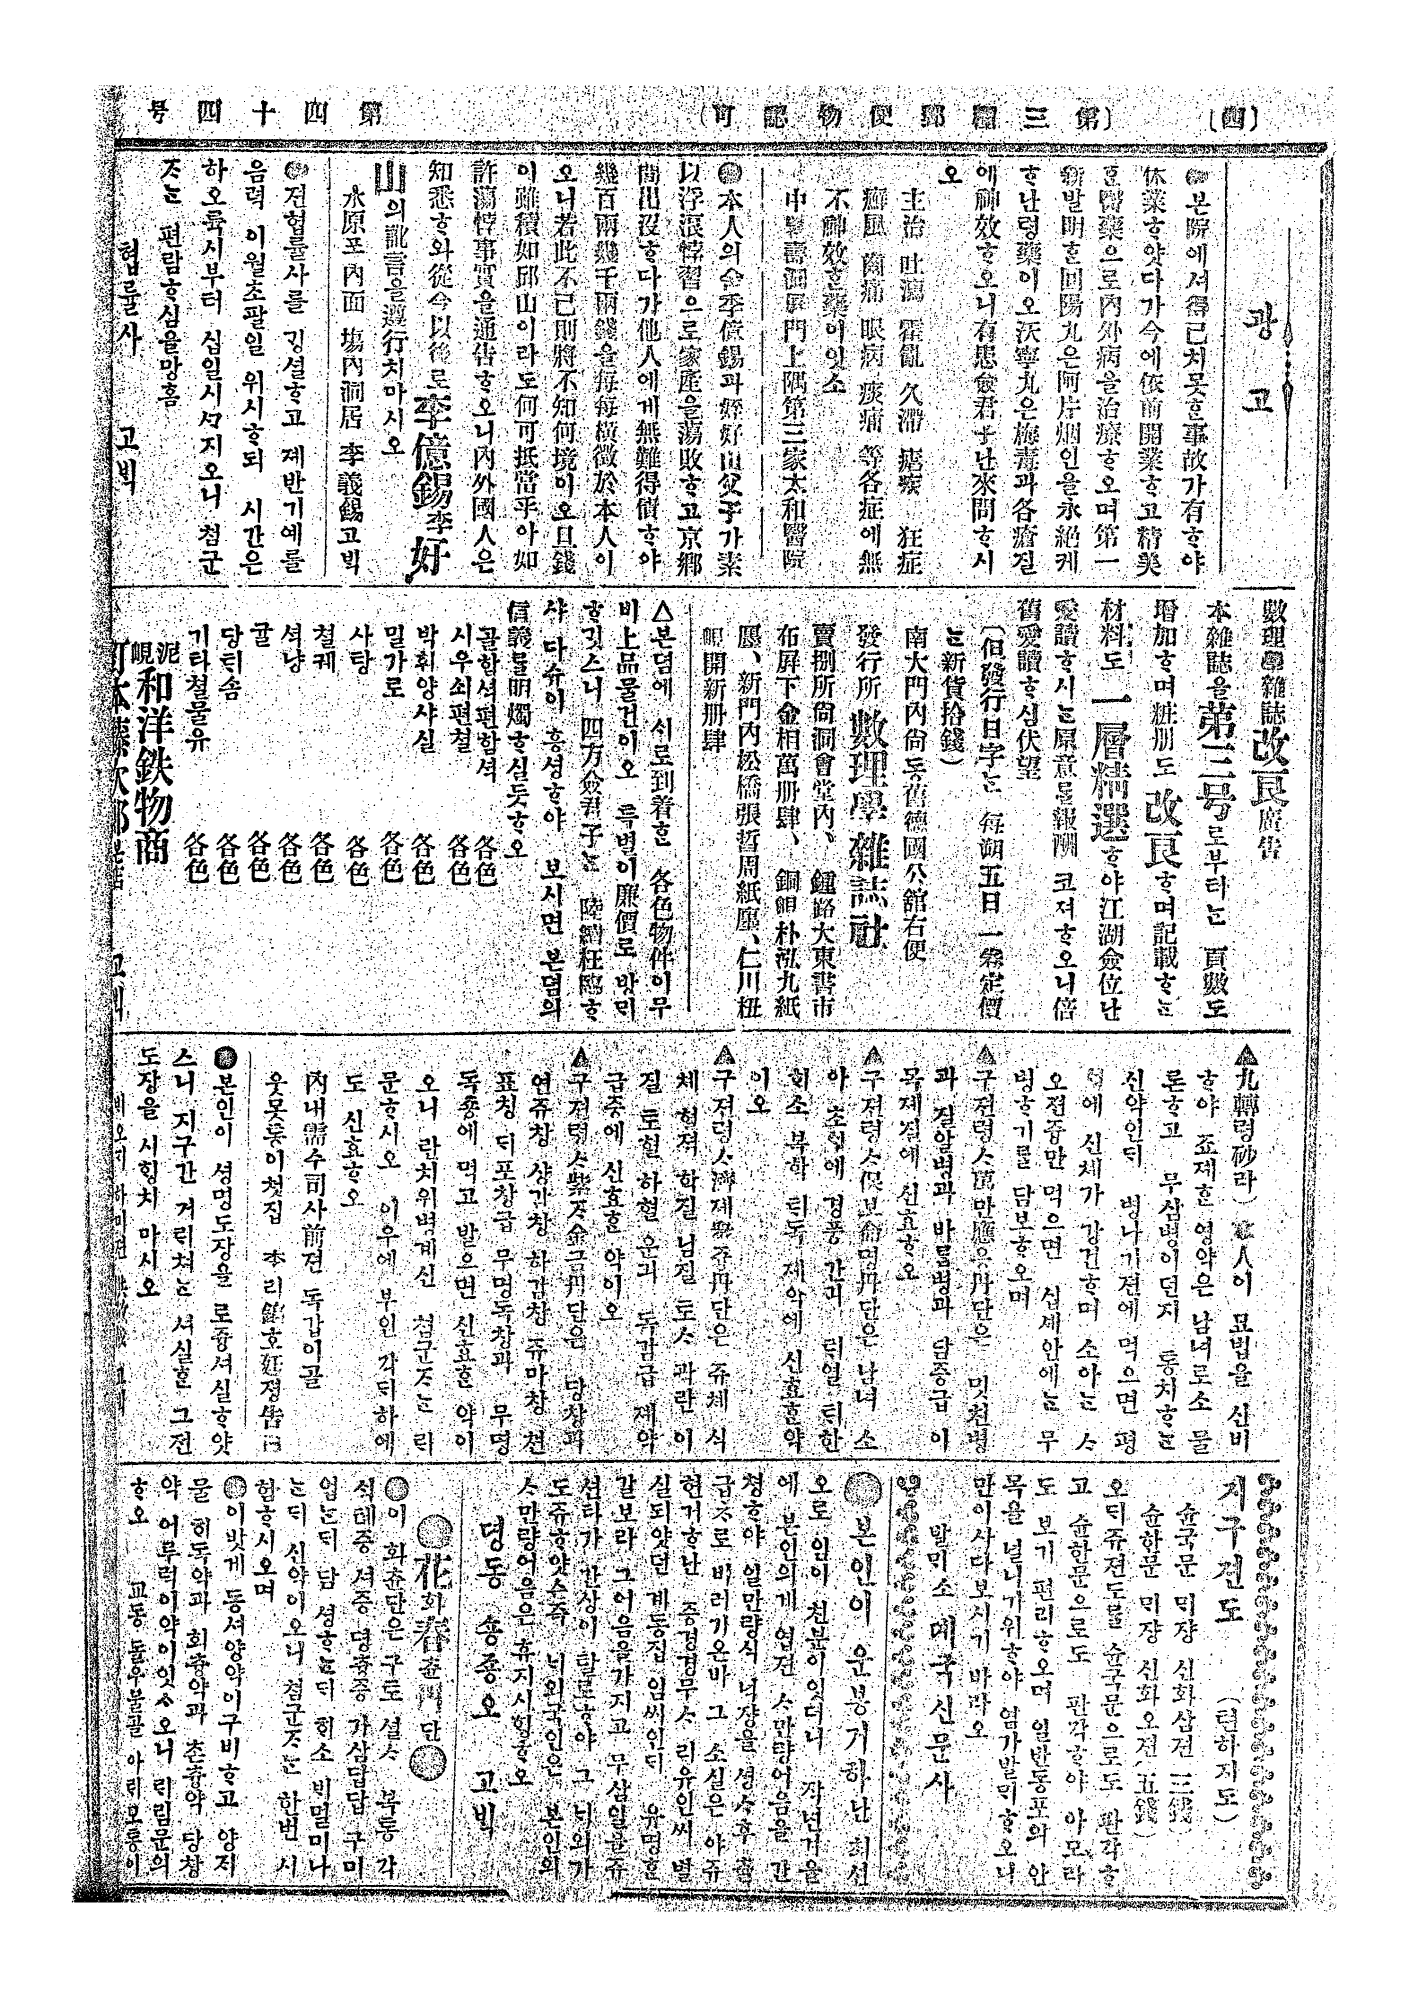 (四)
(第三種郵便物認可)
第四十四号
광고
●본院에셔得已치못ᄒᆞᆫ事故가有ᄒᆞ야
休業ᄒᆞ얏다가今에依前開業ᄒᆞ고精美
ᄒᆞᆫ醫藥으로內外病을治療ᄒᆞ오며第一
新發明ᄒᆞᆫ回陽丸은阿片烟인을永絕케
ᄒᆞ난령藥이오沃寧丸은梅毒과各瘡질
에神效ᄒᆞ오니有患僉君子난來問ᄒᆞ시
오
主治 吐瀉 霍亂 久滯 瘧疾 狂症
癎風 齒痛 眼病 痰痛 等各症에無
不神效ᄒᆞᆫ藥이잇소
中署壽洞屛門上隅第三家太和醫院
●本人의舍季億錫과姪好山父子가素
以浮浪悖習으로家產을蕩敗ᄒᆞ고京鄕
間出沒ᄒᆞ다가他人에게無難得債ᄒᆞ야
幾百兩幾千兩錢을每每橫徵於本人이
오니若此不已則將不知何境이오且錢
이雖積如邱山이라도何可抵當乎아如
許蕩悖事實을通告ᄒᆞ오니內外國人은
知悉ᄒᆞ와從今以後로李億錫李好
山의訛言을遵行치마시오
水原포內面 塲內洞居 李義錫고ᄇᆡᆨ
●젼협률사를 ᄀᆡᆼ셜ᄒᆞ고 졔반기예를
음력 이월초팔일 위시ᄒᆞ되 시간은
하오륙시부터 십일시ᄭᆞ지오니 쳠군
ᄌᆞᄂᆞᆫ 편람ᄒᆞ심을망홈
협률사 고ᄇᆡᆨ
數理學雜誌改良廣告
本雜誌을第三号로부터ᄂᆞᆫ 頁數도
增加ᄒᆞ며粧册도改良ᄒᆞ며記載ᄒᆞᄂᆞᆫ
材料도 一層精選ᄒᆞ야江湖僉位난
愛讀ᄒᆞ시ᄂᆞᆫ原意ᄅᆞᆯ報酬코져ᄒᆞ오니倍
舊愛讀ᄒᆞ심伏望
(但發行日字ᄂᆞᆫ 每朔五日 一券定價
ᄂᆞᆫ新貨拾錢)
南大門內尙동舊德國公館右便
發行所 數理學雜誌社
賣捌所尙洞會堂內、鍾路大東書市
布屛下金相萬册肆、銅峴朴泓九紙
廛、新門內松橋張晢周紙廛、仁川杻
峴開新册肆
△본뎜에 ᄉᆡ로到着ᄒᆞᆫ 各色物件이무
비上品물건이오 특별이廉價로 방ᄆᆡ
ᄒᆞ깃스니 四方僉君子ᄂᆞᆫ 陸續枉臨ᄒᆞ
샤 다슈이 흥셩ᄒᆞ야 보시면 본뎜의
信義ᄅᆞᆯ明燭ᄒᆞ실듯ᄒᆞ오
골함셕편함셕 各色
시우쇠편쳘 各色
박휘양사실 各色
밀가로 各色
사탕 各色
쳘궤 各色
셔냥 各色
귤 各色
당ᄃᆡ솜 各色
기타쳘물유 各色
泥峴和洋鉄物商
▲九轉령砂라) 意人이 묘법을 신비
ᄒᆞ야 죠졔ᄒᆞᆫ 영약은 남녀로소 물
론ᄒᆞ고 무삼병이던지 통치ᄒᆞᄂᆞᆫ
신약인ᄃᆡ 병나기젼에 먹으면 평
에 신체가 강건ᄒᆞ며 소아ᄂᆞᆫ ᄉᆞ
오젼즁만 먹으면 십셰안에ᄂᆞᆫ 무
병ᄒᆞ기를 담보ᄒᆞ오며
▲구젼령ᄉᆞ萬만應응丹단은 밋쳔병
과 질알병과 바ᄅᆞᆷ병과 담증급 이
목졔질에 신효ᄒᆞ오
▲구젼령ᄉᆞ保보命명丹단은 남녀 소
아 초학에 경풍 간긔 ᄃᆡ열 ᄃᆡ한
회소 부학 ᄐᆡ독 졔악에 신효ᄒᆞᆫ약
이오
▲구젼령ᄉᆞ濟졔衆즁丹단은 쥬체 식
체 혈젹 학질 님질 토ᄉᆞ 곽란 이
질 토혈 하혈 운긔 독감급 졔약
급증에 신효ᄒᆞᆫ 약이오
▲구젼령ᄉᆞ紫ᄌᆞ金금丹단은 당창과
연쥬창 샹감창 하감창 쥬마창 쳔
표칭 ᄃᆡ포창급 무명독창과 무명
독죵에 먹고 발으면 신효ᄒᆞᆫ 약이
오니 란치위병계신 쳠군ᄌᆞᄂᆞᆫ ᄅᆡ
문ᄒᆞ시오 이우에 부인 각ᄃᆡ하에
도 신효ᄒᆞ오
內내需수司사前젼 독갑이골
웃못동이첫집 李리鎬호廷졍告白
●본인이 셩명도장을 로즁셔실ᄒᆞ얏
스니 지구간 거리쳐ᄂᆞᆫ 셔실ᄒᆞᆫ 그젼
도장을 시힝치 마시오
지구젼도 (텬하지도)
슌국문 ᄆᆡ쟝 신화삼젼(三錢)
슌한문 ᄆᆡ쟝 신화오젼(五錢)
오ᄃᆡ쥬젼도를 슌국문으로도 판각ᄒᆞ
고 슌한문으로도 판각ᄒᆞ야 아모라
도 보기 편리ᄒᆞ오며 일반동포의 안
목을 널니기위ᄒᆞ야 염가발ᄆᆡᄒᆞ오니
만이사다보시기 바라오
발ᄆᆡ소 뎨국신문사
●본인이 운봉기하난 최션
오로 인이 친분이잇더니 작년거을
에 본인의게 엽젼 ᄉᆞ만량어음을 간
쳥ᄒᆞ야 일만량식 넉쟝을 셩ᄉᆞ후 츌
급ᄎᆞ로 바려기온바 그 소실은 야쥬
현거ᄒᆞ난 증경경무ᄉᆞ 리유인씨 별
실되얏던 계동집 임씨인ᄃᆡ 유명ᄒᆞᆫ
갈보라 그어음을가지고 무삼일을쥬
션타가 간상이 탈로ᄒᆞ야 그 ᄂᆡ외가
도쥬ᄒᆞ얏슨즉 ᄂᆡ외국인은 본인의
ᄉᆞ만량어음은 휴지시힝ᄒᆞ오
명동 송종오 고ᄇᆡᆨ
●花화春츈丹단●
●이 화츈단은 구토 셜ᄉᆞ 복통 각
식톄증 셔증 뎡츙증 가삼답답 구미
업ᄂᆞᆫᄃᆡ 담 셩ᄒᆞᄂᆞᆫᄃᆡ 회소 비멀미나
ᄂᆞᆫᄃᆡ 신약이오니 쳠군ᄌᆞᄂᆞᆫ 한번 시
험ᄒᆞ시오며
●이밧게 동셔양약이구비ᄒᆞ고 양지
물 ᄒᆡ독약과 회츙약과 촌츙약 당창
약 어루럭이약이잇ᄉᆞ오니 ᄅᆡ림문의
ᄒᆞ오 교동 돌우물골 아ᄅᆡ모통이